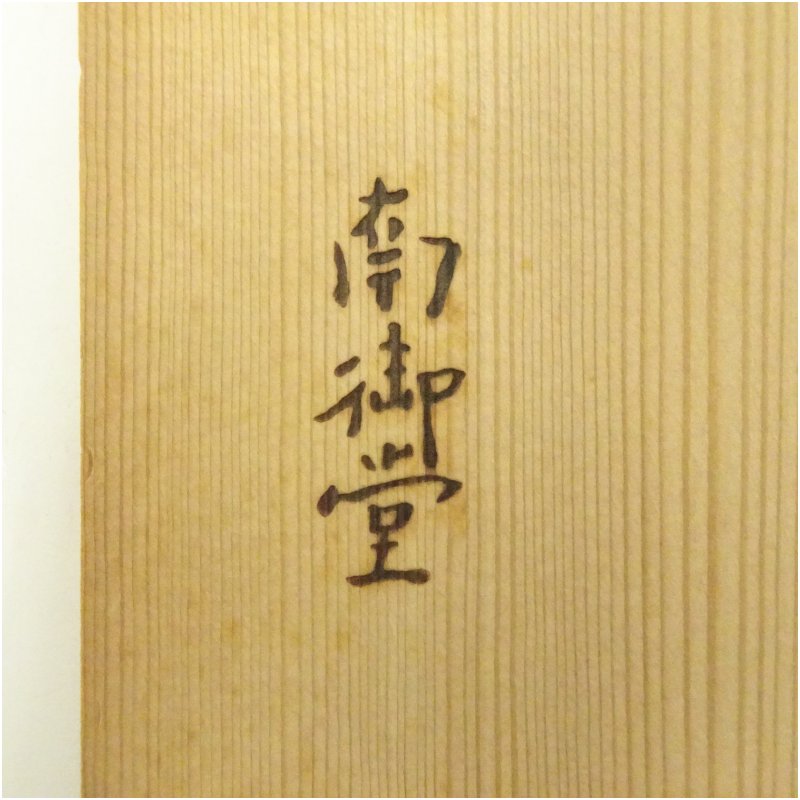 南御堂